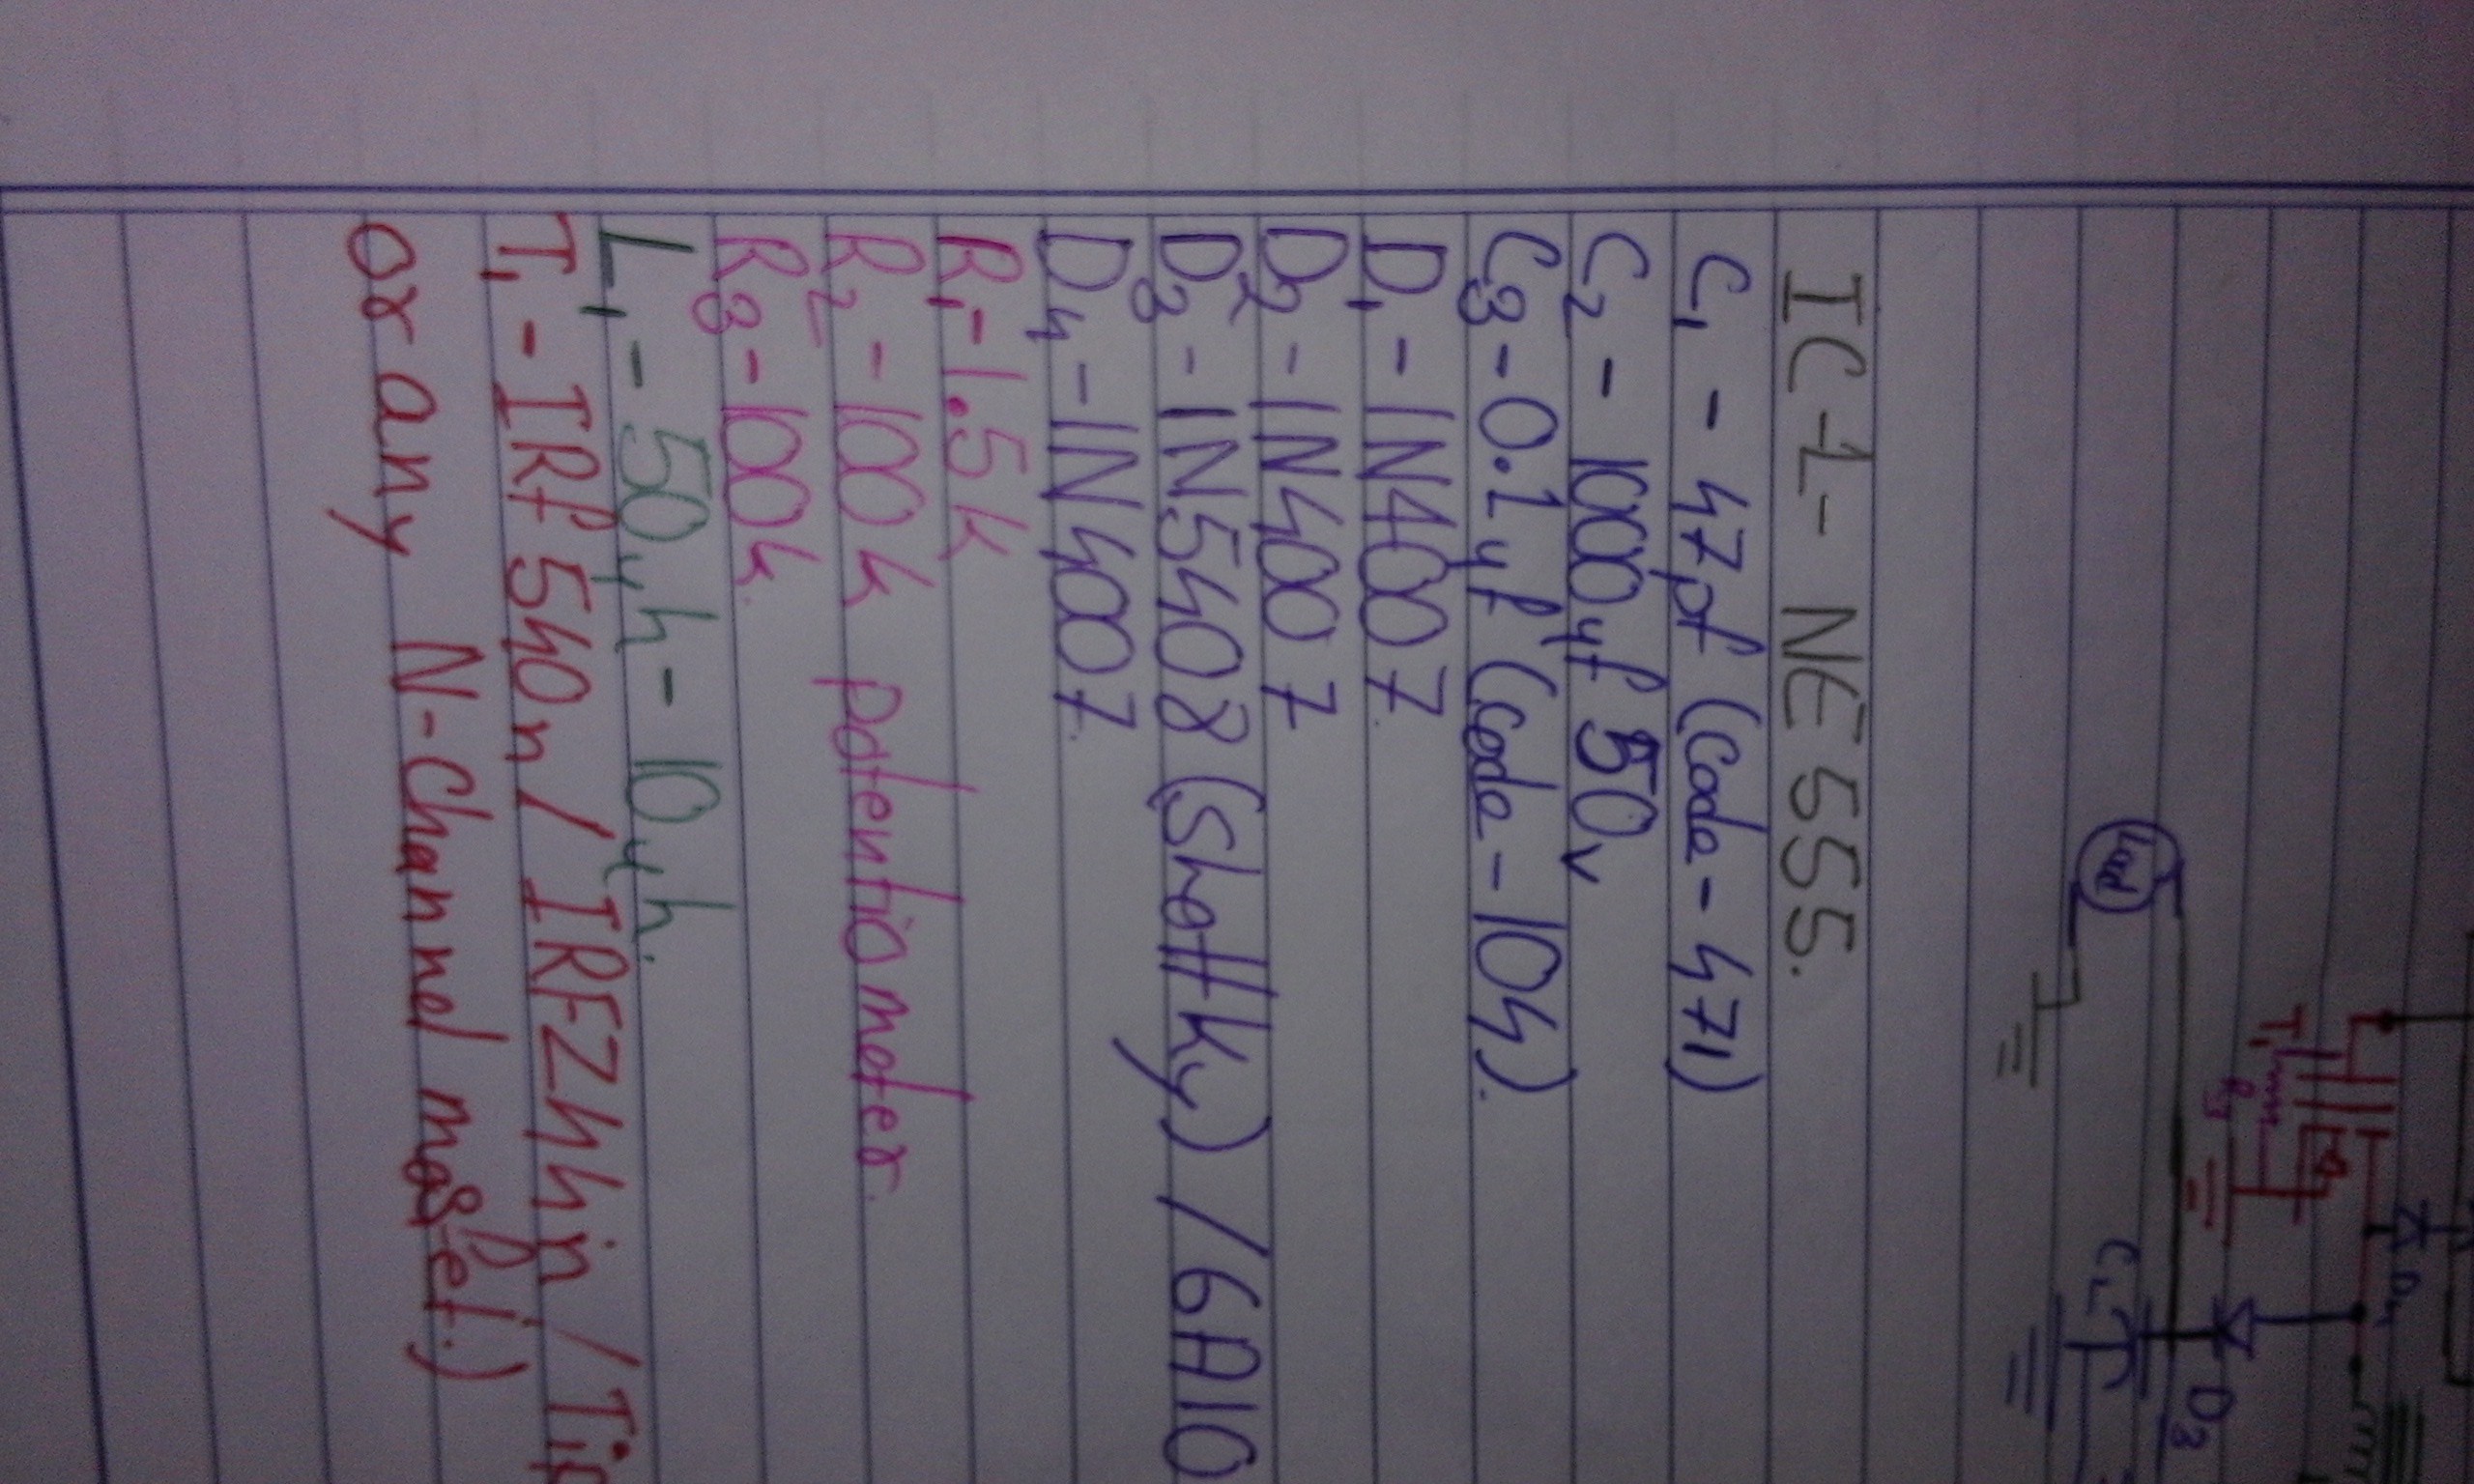 Load
T1
R3
D4
C2
D3
IC-1- NE555.
C1 - 47pf (Code - 471)
C2 - 1000µf 50v
C3 - 0.1µf (Code - 104).
D1 - IN4007
D2 - IN4007
D3 - IN5408 (Shottky) / 6A10
D4 - IN4007.
R1 - 1.5k
R2 - 100k potentiometer.
R3 - 100k.
L1 - 50µh - 10µh.
T1 - IRf540n / IRFZ44n / Tip
or any N-Channel mosfet.)